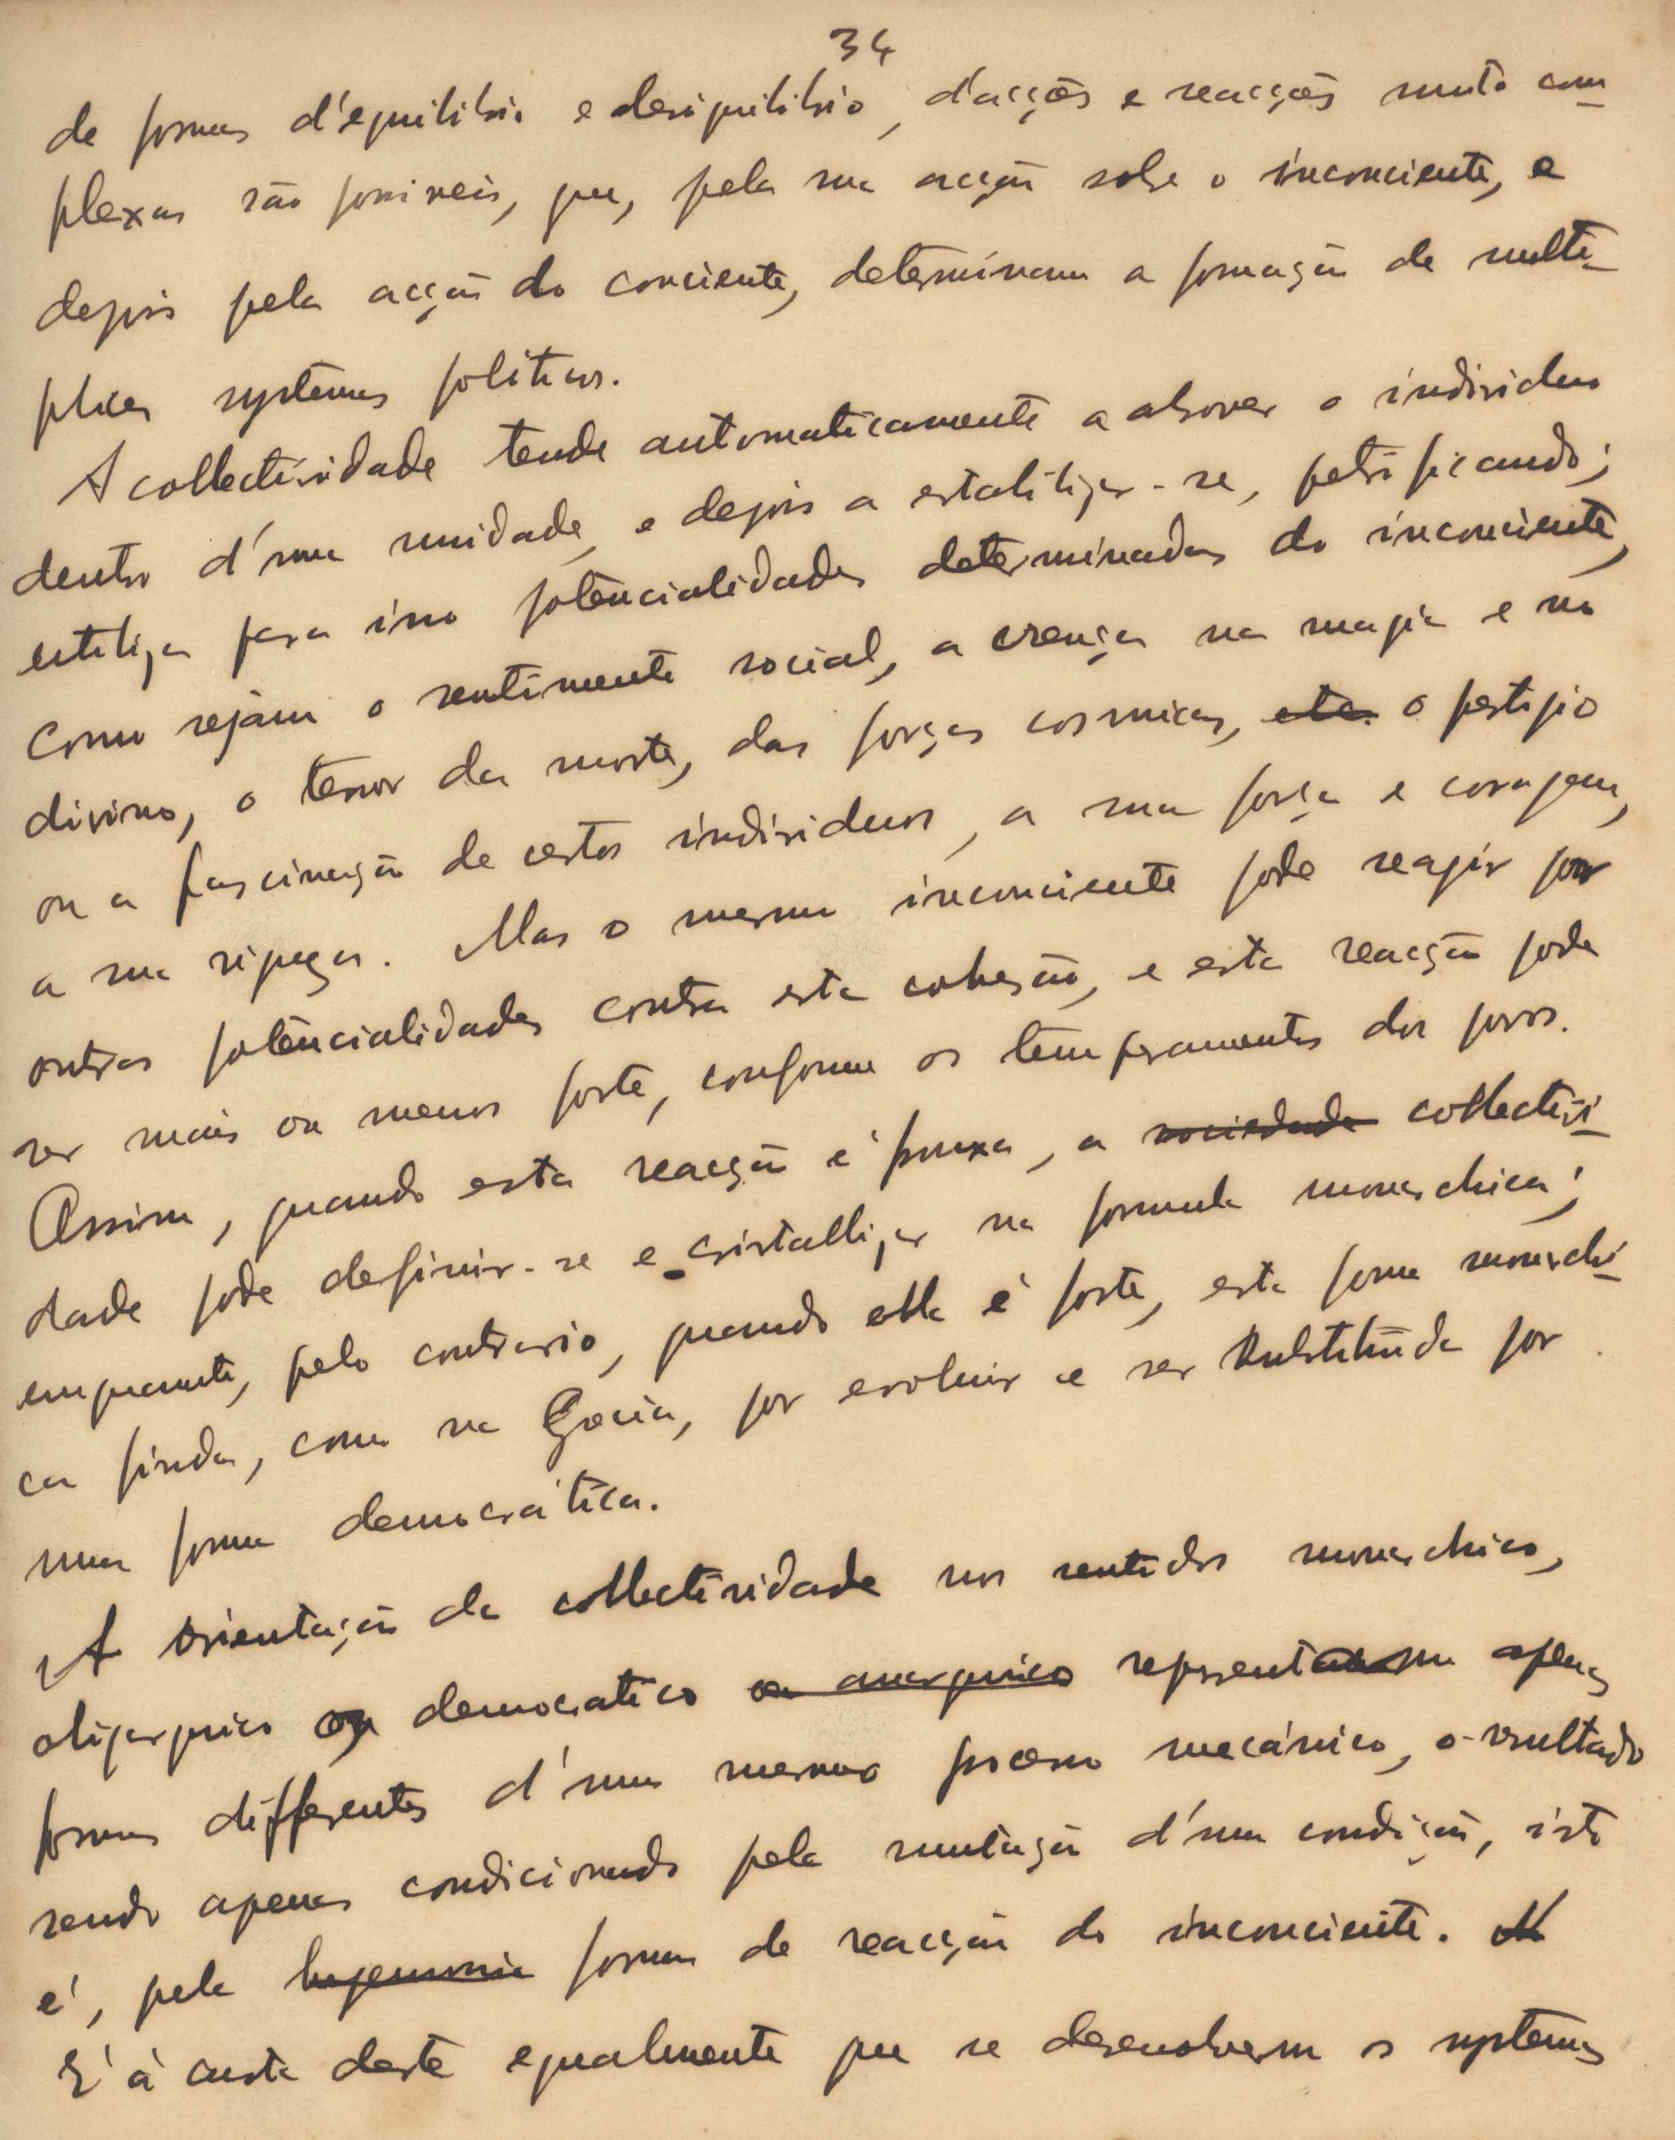 34
de formas d'equilibrio e desiquilibrio, d'acções e reacções muito com-
plexas são possiveis, que, pela sua acção sobre o inconciente, e
depois pela acção do conciente, determinam a formação de multi-
plices systemas politicos.
A collectividade tende automaticamente a absorver o individuo
dentro d'uma unidade, e depois a estabilizar-se, petrificando;
utiliza para isso potencialidades determinadas do inconciente,
como sejam o sentimento social, a crença na magia e no
divino, o terror da morte, das forças cosmicas, etc. o prestigio
ou a fascinação de certos individuos, a sua força e coragem,
a sua riqueza. Mas o mesmo inconciente pode reagir por
outras potencialidades contra esta cohesão, e esta reacção pode
ser mais ou menos forte, conforme os temperamentos dos povos.
Assim, quando esta reacção é frouxa, a sociedade collectivi-
dade pode definir-se e cristallizar na formula monarchica;
emquanto, pelo contrario, quando ella é forte, esta forma monarchi-
ca finda, como na Grecia, por evoluir e ser substituida por
uma forma democrática.
A orientação da collectividade nos sentidos monarchico,
oligarquico ou democratico ou anarquico representam apenas
formas differentes d'um mesmo processo mecánico, o resultado
sendo apenas condicionado pela mutação d'uma condição, isto
é, pela hegemonia formas de reacção do inconciente. M
E' à custa deste egualmente que se desenvolverm os systemas